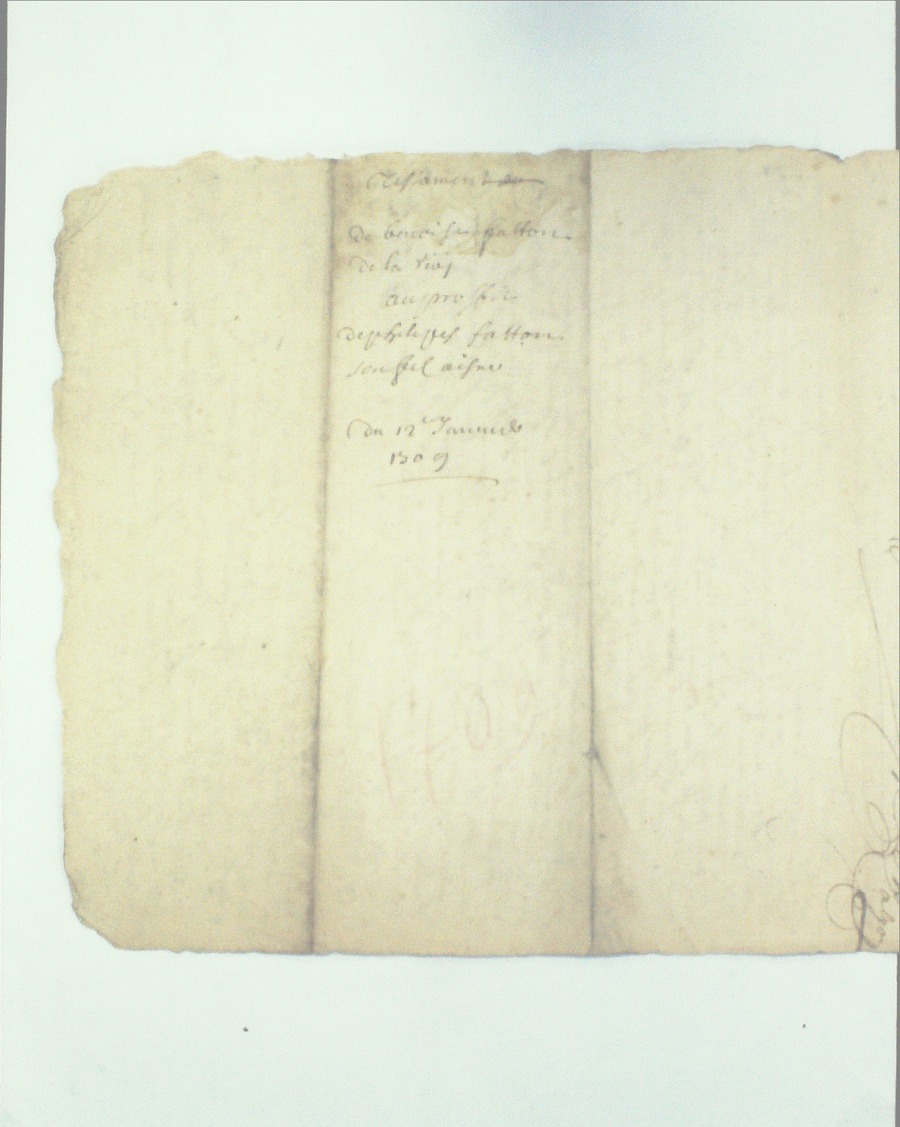 Testament
de benoiste fatton
de la Riuj
au proffit
de philipes fatton
son fiel aisne
Du 12e Januier
1709
1709